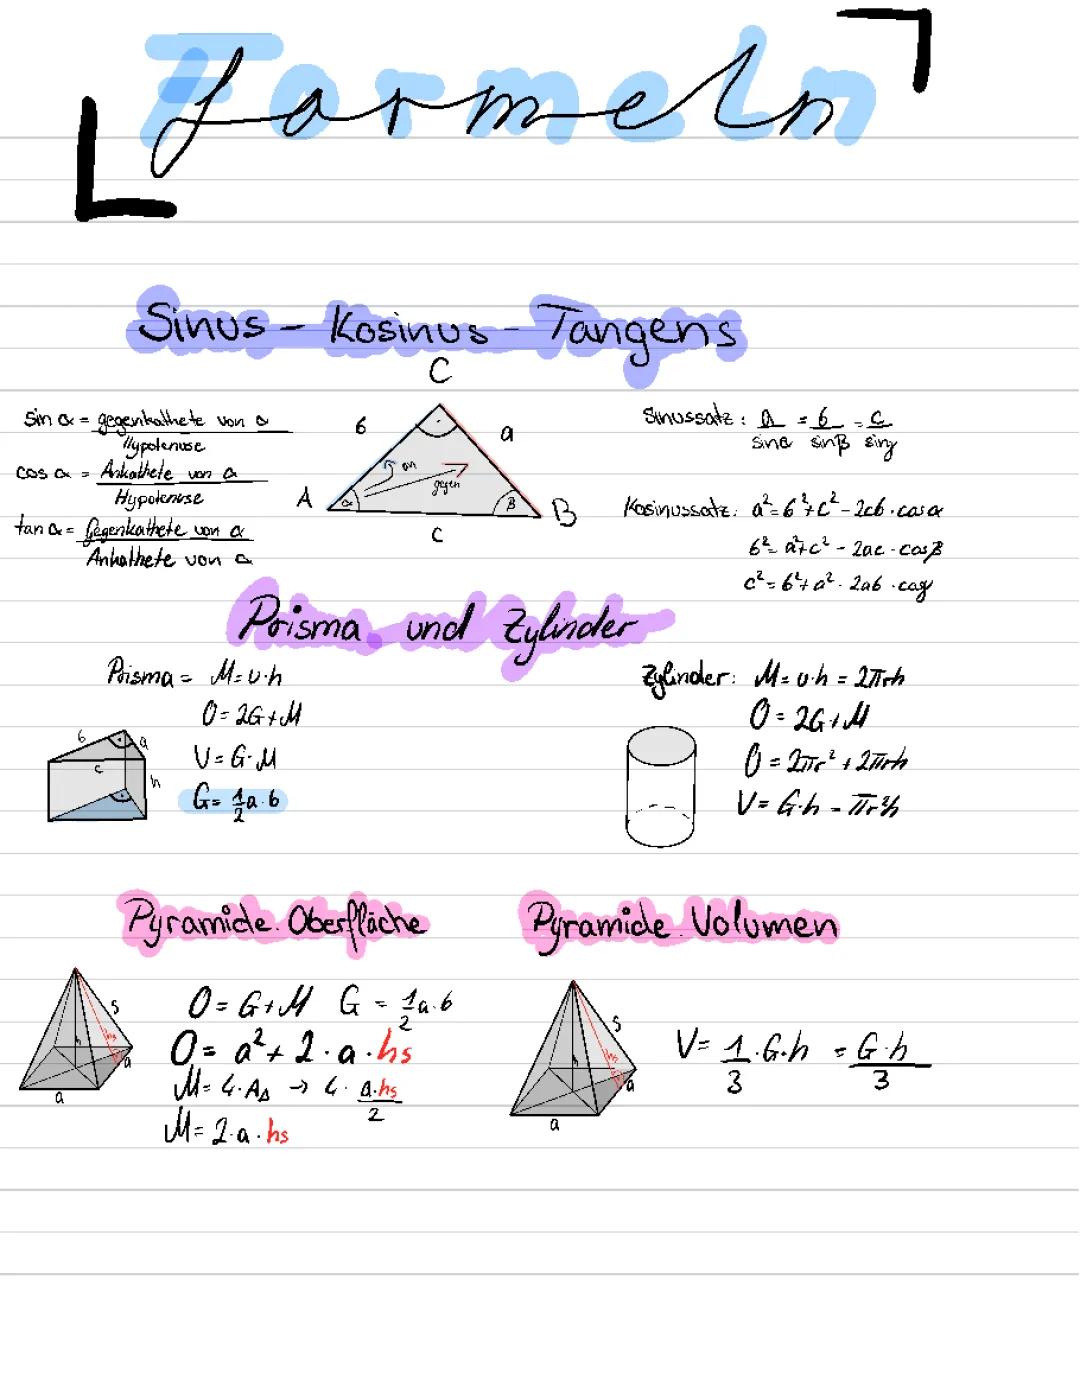 Formeln
Sinus - Kosinus - Tangens
sin α = gegenkathete von α / Hypotenuse
cos α = Ankathete von α / Hypotenuse
tan α = Gegenkathete von α / Ankathete von α
C
b
a
an
gegen
A
α
β
B
c
Sinussatz: a/sinα = b/sinβ = c/sinγ
Kosinussatz: a² = b² + c² - 2cb · cosα
b² = a² + c² - 2ac · cosβ
c² = b² + a² - 2ab · cosγ
Prisma und Zylinder
Prisma = M = u·h
O = 2G + M
V = G·M
G = 1/2 a·b
b
a
c
h
Zylinder: M = u·h = 2πrh
O = 2G + M
O = 2πr² + 2πrh
V = G·h = πr²h
Pyramide Oberfläche
O = G + M G = 1/2 a·b
O = a² + 2 · a · hs
M = 4 · A△ → 4 · a·hs/2
M = 2 · a · hs
s
h
hs
a
a
Pyramide Volumen
s
h
hs
a
a
V = 1/3 · G·h = G·h/3